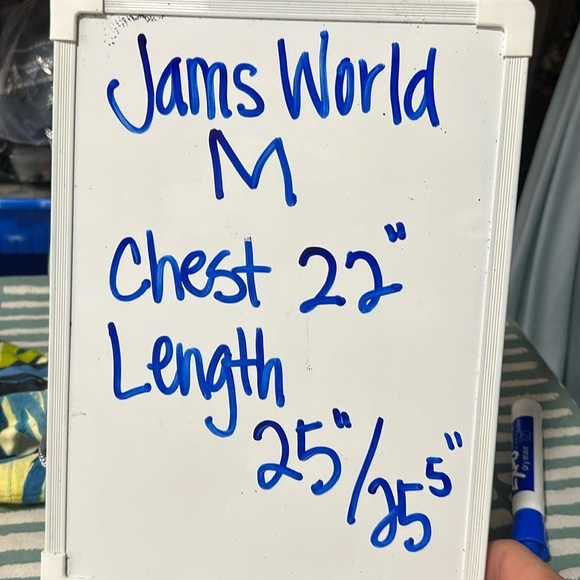 Jams World
M
Chest 22"
Length
25"/25 5"